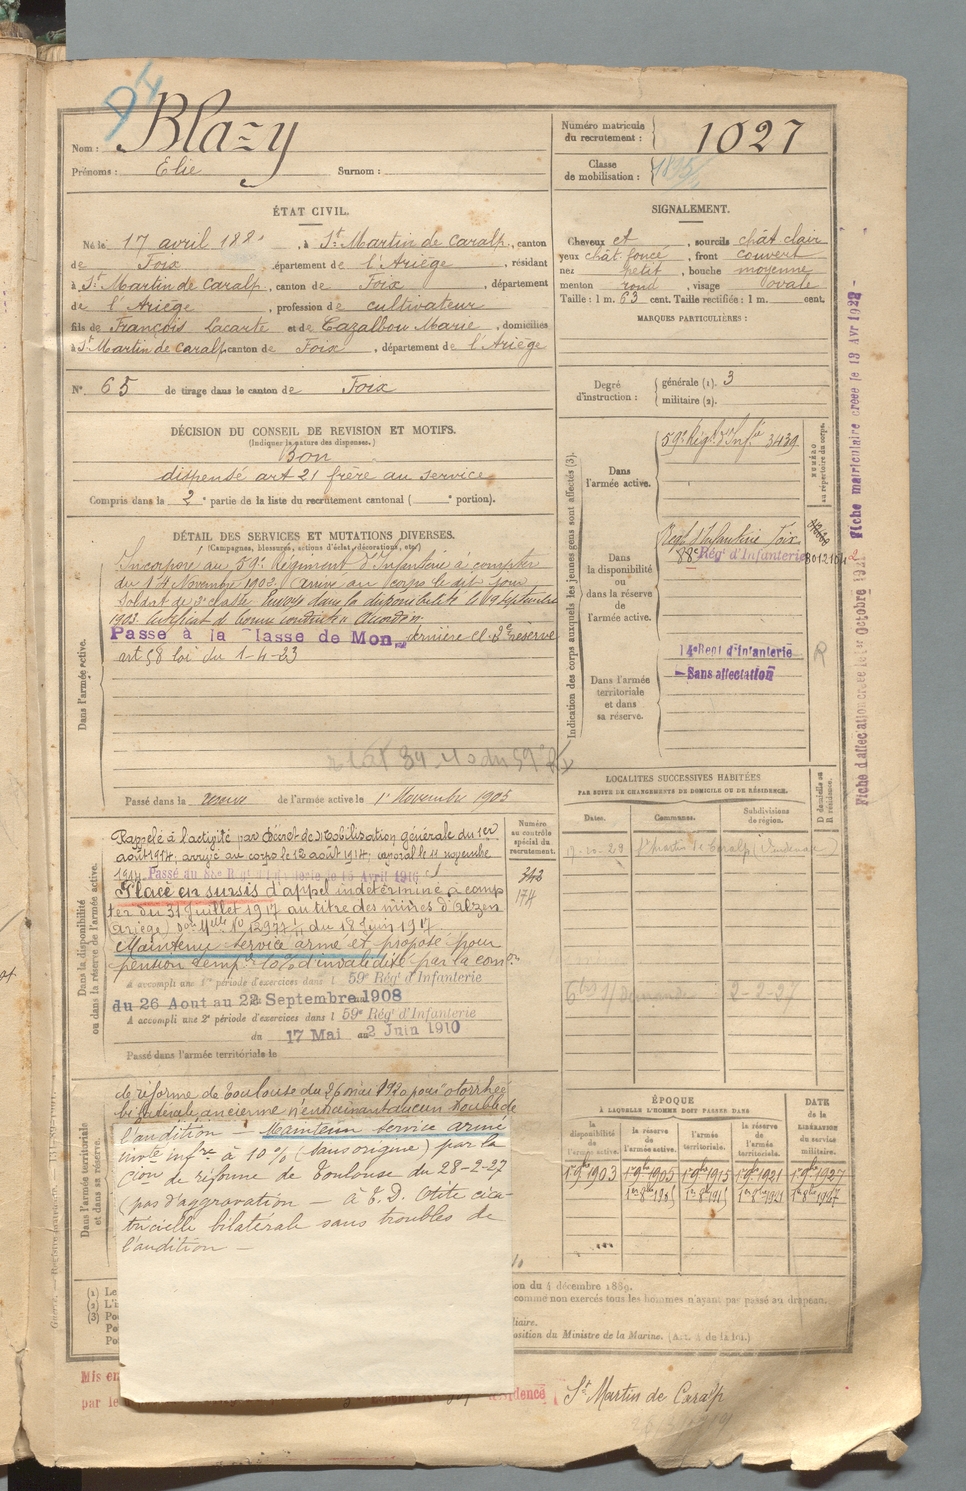 Nom : Blazy
Prénoms : Elie Surnom :
Numéro matricule du recrutement : 1027
Classe de mobilisation :
ÉTAT CIVIL.
Né le 17 avril 188 , à St Martin de Caralp, canton
de Foix département de l'Ariège, résidant
à St Martin de Caralp, canton de Foix, département
de l'Ariège, profession de cultivateur
fils de François Lacarte et de Cazalbou Marie, domiciliés
à St Martin de Caralp canton de Foix, département de l'Ariège
N° 65 de tirage dans le canton de Foix
SIGNALEMENT.
Cheveux et , sourcils chât clair
yeux chât foncé , front couvert
nez petit , bouche moyenne
menton rond , visage ovale
Taille : 1 m. 63 cent. Taille rectifiée : 1 m. cent.
MARQUES PARTICULIÈRES :
Degré d'instruction : générale (1). 3
militaire (2).
DÉCISION DU CONSEIL DE REVISION ET MOTIFS.
(Indiquer la nature des dispenses.)
Bon
dispensé art 21 frère au service
Compris dans la 2e partie de la liste du recrutement cantonal ( e portion).
DÉTAIL DES SERVICES ET MUTATIONS DIVERSES.
(Campagnes, blessures, actions d'éclat, décorations, etc.)
Dans l'armée active.
Incorporé au 59e Régiment d'Infanterie à compter
du 14 Novembre 1902. Arrivé au corps le dit jour
Soldat de 2e classe Envoyé dans la disponibilité le 19 Septembre
1903. Certificat de bonne conduite accordé.
Passé à la Classe de Mob dernière cl. 2e réserve
art 58 loi du 1-4-23
Passé dans la réserve de l'armée active le 1er Novembre 1905
Indication des corps auxquels les jeunes gens sont affectés (3).
NUMÉRO au répertoire du corps.
Dans l'armée active.
59e Régt d'Infie 3439
Dans la disponibilité ou dans la réserve de l'armée active.
Régt d'Infanterie Foix
88e Régt d'Infanterie
14e Regt d'Infanterie
Sans affectation
R
Dans l'armée territoriale et dans sa réserve.
LOCALITÉS SUCCESSIVES HABITÉES
PAR SUITE DE CHANGEMENTS DE DOMICILE OU DE RÉSIDENCE.
Dates. Communes. Subdivisions de région. D domicile ou R résidence.
2-2-27
Dans la disponibilité ou dans la réserve de l'armée active.
Numéro au contrôle spécial du recrutement.
342
174
Rappelé à l'activité par décret de Mobilisation générale du 1er
août 1914, arrivé au corps le 12 août 1914, caporal le 11 novembre
1914.
Placé en sursis d'appel indéterminé à comp
ter du 31 Juillet 1917 au titre des mines d'Alzen
(Ariège)
Maintenu service armé et proposé pour
pension tempre 10% d'invalidité par la comon
A accompli une 1re période d'exercices dans le 59e Régt d'Infanterie
du 26 Aout au 22 Septembre 1908
A accompli une 2e période d'exercices dans le 59e Régt d'Infanterie
du 17 Mai au 2 Juin 1910
Passé dans l'armée territoriale le
Dans l'armée territoriale et dans sa réserve.
de réforme de Toulouse du 26 mai 1920 pour "otorrhée
bilatérale, ancienne n'entrainant aucun trouble de
l'audition — Maintenu service armé
invté infre à 10% (sans origine) par la
cion de réforme de Toulouse du 28-2-27
(pas d'aggravation — à E. D. Otite cica-
tricielle bilatérale sans troubles de
l'audition —
ÉPOQUE
À LAQUELLE L'HOMME DOIT PASSER DANS
la disponibilité de l'armée active. la réserve de l'armée active. l'armée territoriale. la réserve de l'armée territoriale.
DATE de la LIBÉRATION du service militaire.
1er 9bre 1903 1er 9bre 1905 1er 9bre 1915 1er 9bre 1921 1er 9bre 1927
Fiche d'affectation créée le 1er Octobre 1921 Fiche matriculaire créée le 13 Avr 1922
ion du 4 décembre 1889.
comme non exercés tous les hommes n'ayant pas passé au drapeau.
iaire.
osition du Ministre de la Marine.
Mis en
par le
résidence St Martin de Caralp